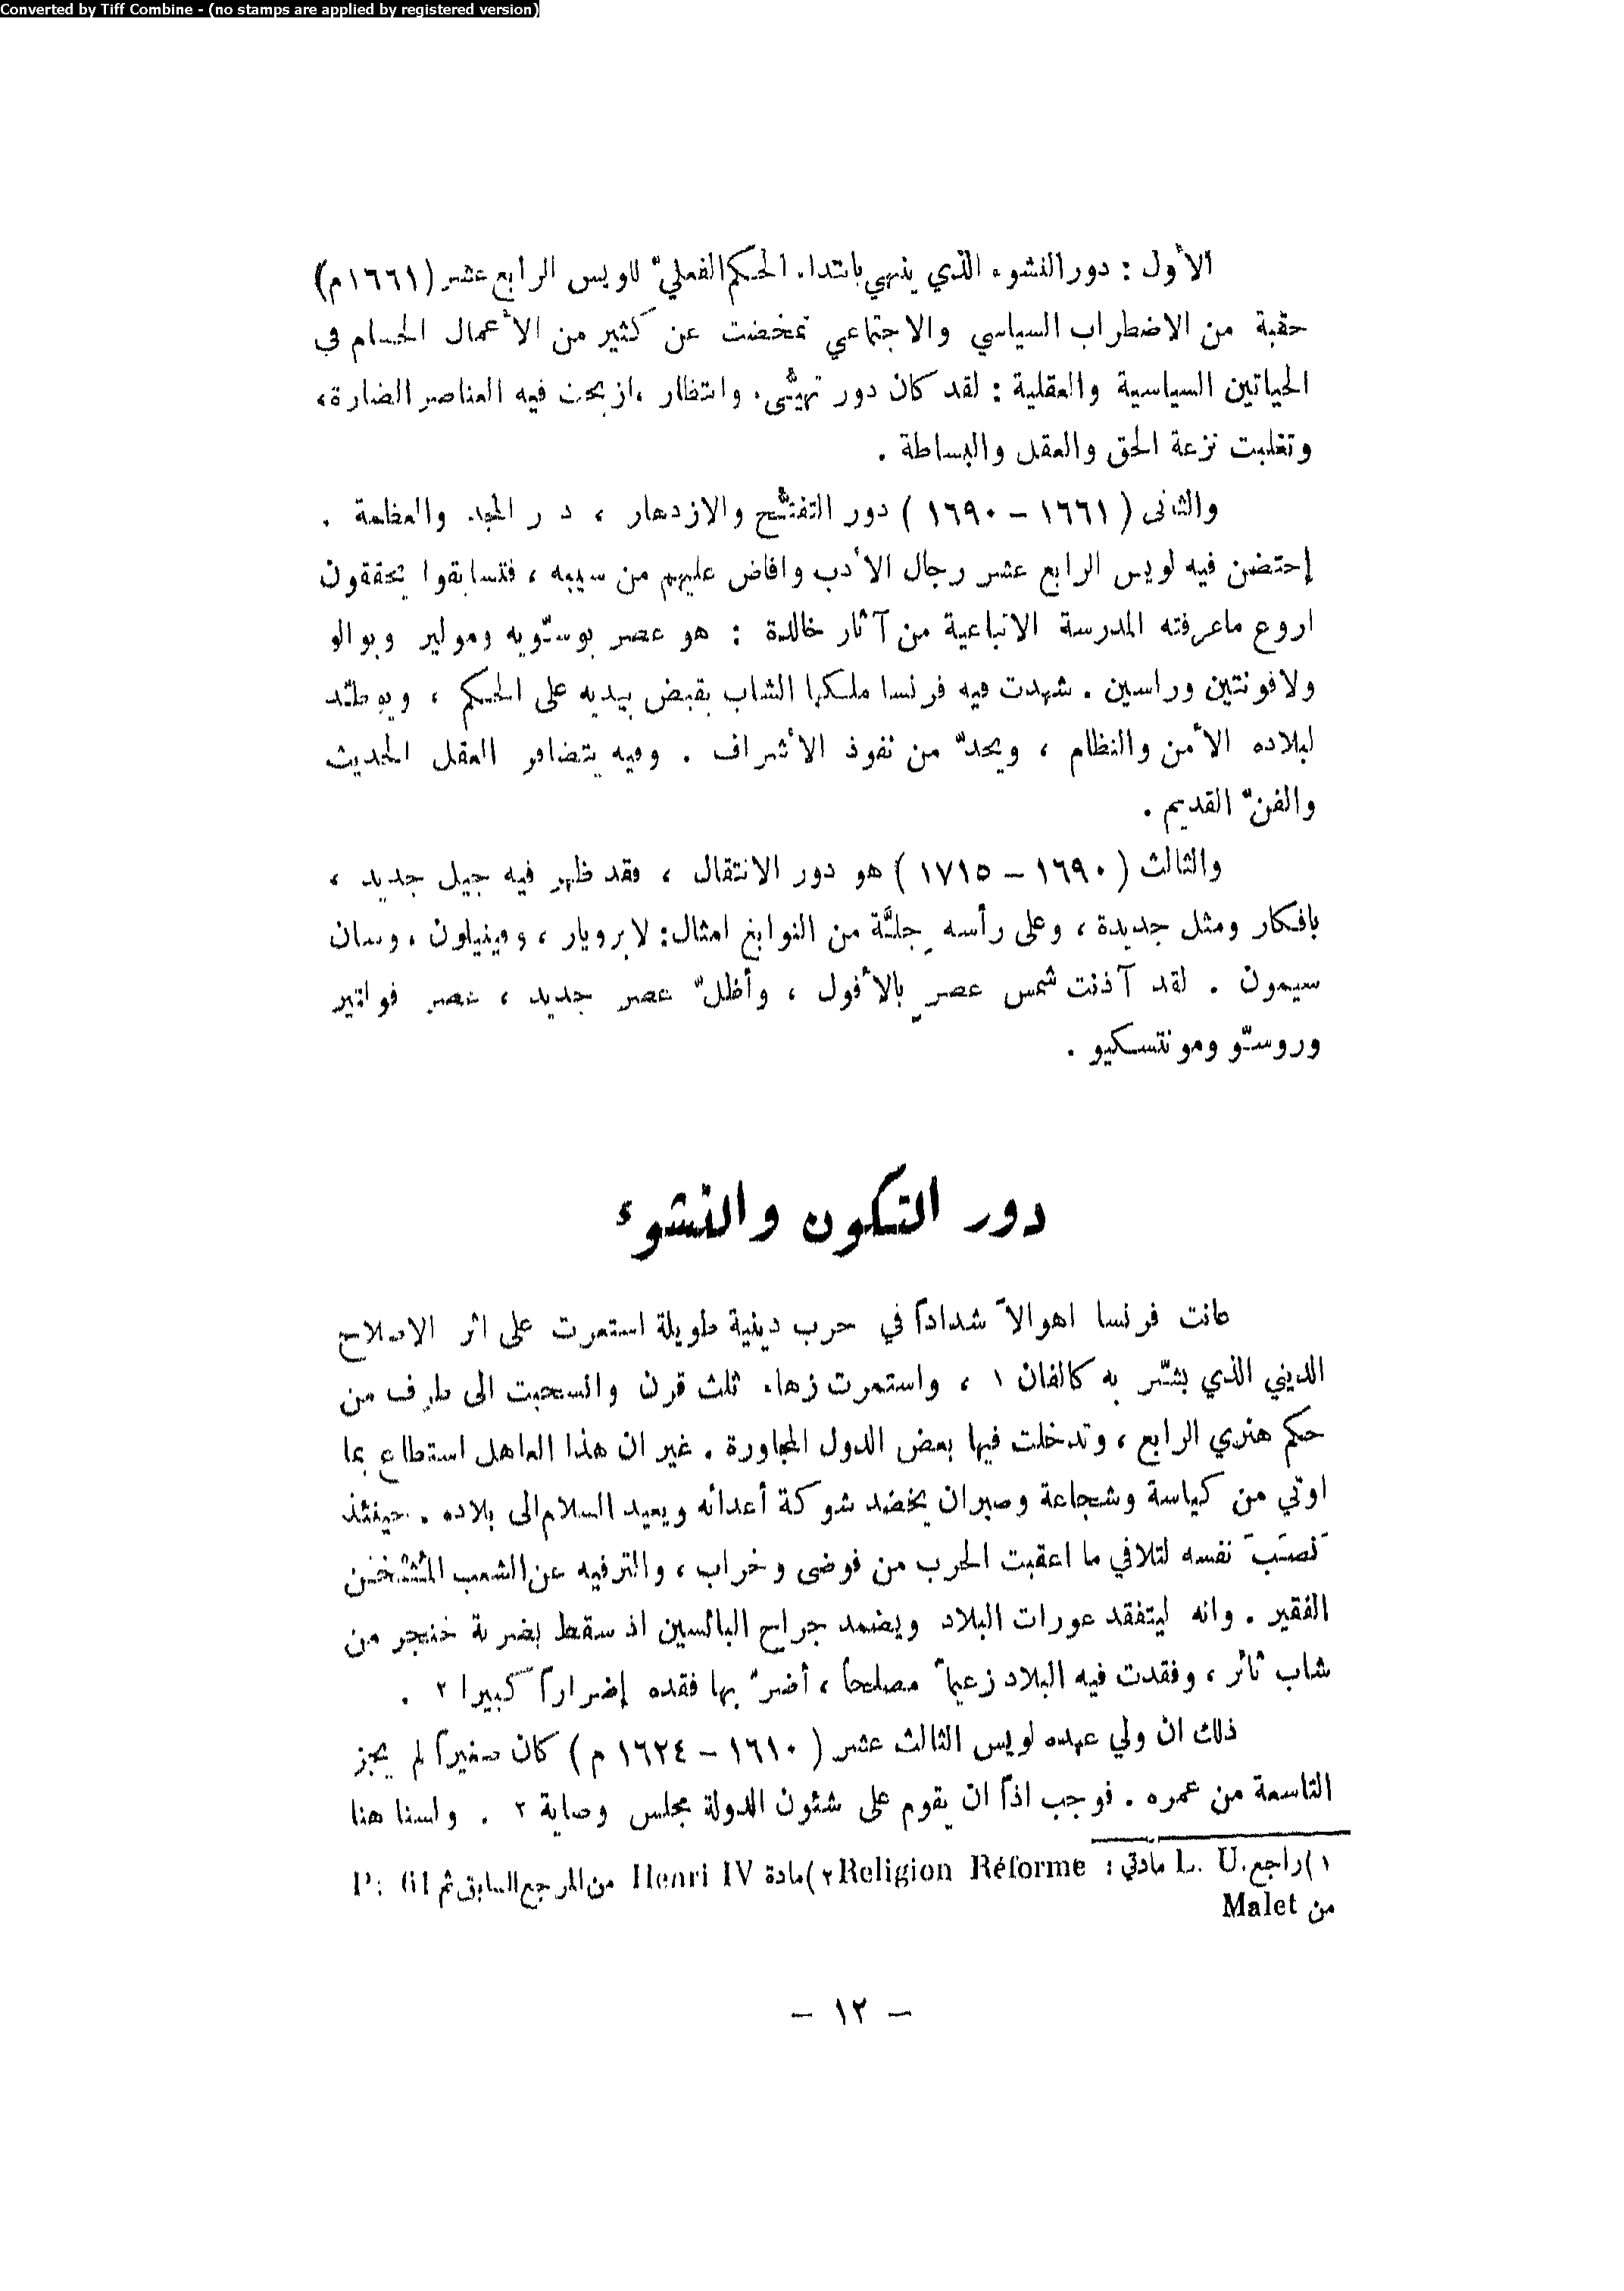 Converted by Tiff Combine - (no stamps are applied by registered version)
الأول : دور النشوء الذي ينهي بابتداء الحكم الفعليّ للويس الرابع عشر (١٦٦١م)
حقبة من الاضطراب السياسي والاجتماعي تمخضت عن كثير من الأعمال الجسام في
الحياتين السياسية والعقلية : لقد كان دور تهيُّىء وانتظار ، ازيحت فيه العناصر الضارة،
وتغلبت نزعة الحق والعقل والبساطة .
والثانى (١٦٦١ – ١٦٩٠) دور التفتُّح والازدهار ، دور المجد والعظمة .
إحتضن فيه لويس الرابع عشر رجال الأدب وافاض عليهم من سيبه ، فتسابقوا يحققون
اروع ماعرفته المدرسة الاتباعية من آثار خالدة : هو عصر بوسّويه وموليير وبوالو
ولافونتين وراسين . شهدت فيه فرنسا ملكها الشاب يقبض بيديه على الحكم ، ويوطّد
لبلاده الأمن والنظام ، ويحدّ من نفوذ الأشراف . وفيه يتضافر العقل الحديث
والفنّ القديم .
والثالث (١٦٩٠ – ١٧١٥) هو دور الانتقال ، فقد ظهر فيه جيل جديد ،
بافكار ومثل جديدة ، وعلى رأسه جلَّة من النوابغ امثال : لابرويار ، وفينيلون ، وسان
سيمون . لقد آذنت شمس عصرٍ بالأفول ، وأظلّ عصر جديد ، عصر فولتير
وروسّو ومونتسكيو .
دور التكون والنشوء
عانت فرنسا اهوالاً شداداً في حرب دينية طويلة استعرت على اثر الاصلاح
الديني الذي بشّر به كالفان ١ ، واستمرت زهاء ثلث قرن وانسحبت الى طرف من
حكم هنري الرابع ، وتدخلت فيها بعض الدول المجاورة . غير ان هذا العاهل استطاع بما
اوتي من كياسة وشجاعة وصبر ان يخضد شوكة أعدائه ويعيد السلام الى بلاده . حينئذ
نصَبَ نفسه لتلافي ما اعقبت الحرب من فوضى وخراب ، والترفيه عن الشعب المُثخن
الفقير . وانه ليتفقد عورات البلاد ويضمد جراح البائسين اذ سقط بضربة خنجر من
شاب ثائر ، وفقدت فيه البلاد زعيماً مصلحاً ، أضرّ بها فقده إضراراً كبيرا ٢ .
ذلك ان ولي عهده لويس الثالث عشر (١٦١٠ – ١٦٢٤ م) كان صغيراً لم يجز
التاسعة من عمره . فوجب اذاً ان يقوم على شئون الدولة مجلس وصاية ٢ . ولسنا هنا
١)راجع L. U. مادتي : Religion Réforme ٢)مادة Henri IV من المرجع السابق ثم P: 61
من Malet
– ١٢ –